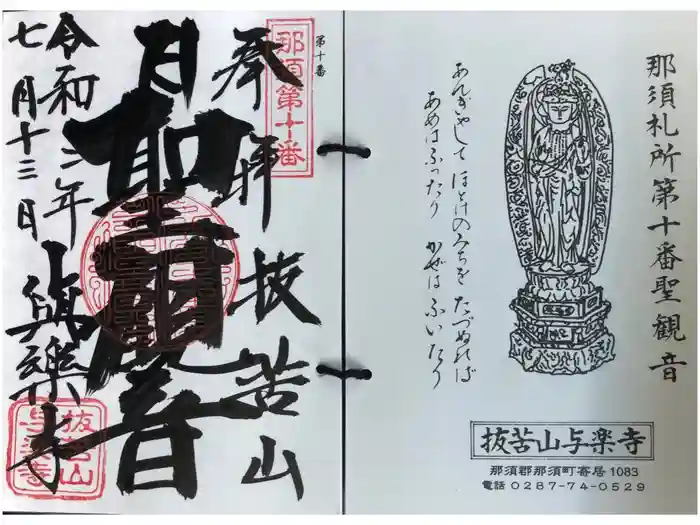 那須札所第十番聖観音
あんぎやして ほとけのみちを たづぬれば
あめはふつたり かぜはふいたり
抜苦山与楽寺
那須郡那須町寄居1083
電話 0287-74-0529
第十番
那須第十番
奉拝 抜苦山
聖観音
令和三年
七月十三日
与楽寺
抜苦山
与楽寺